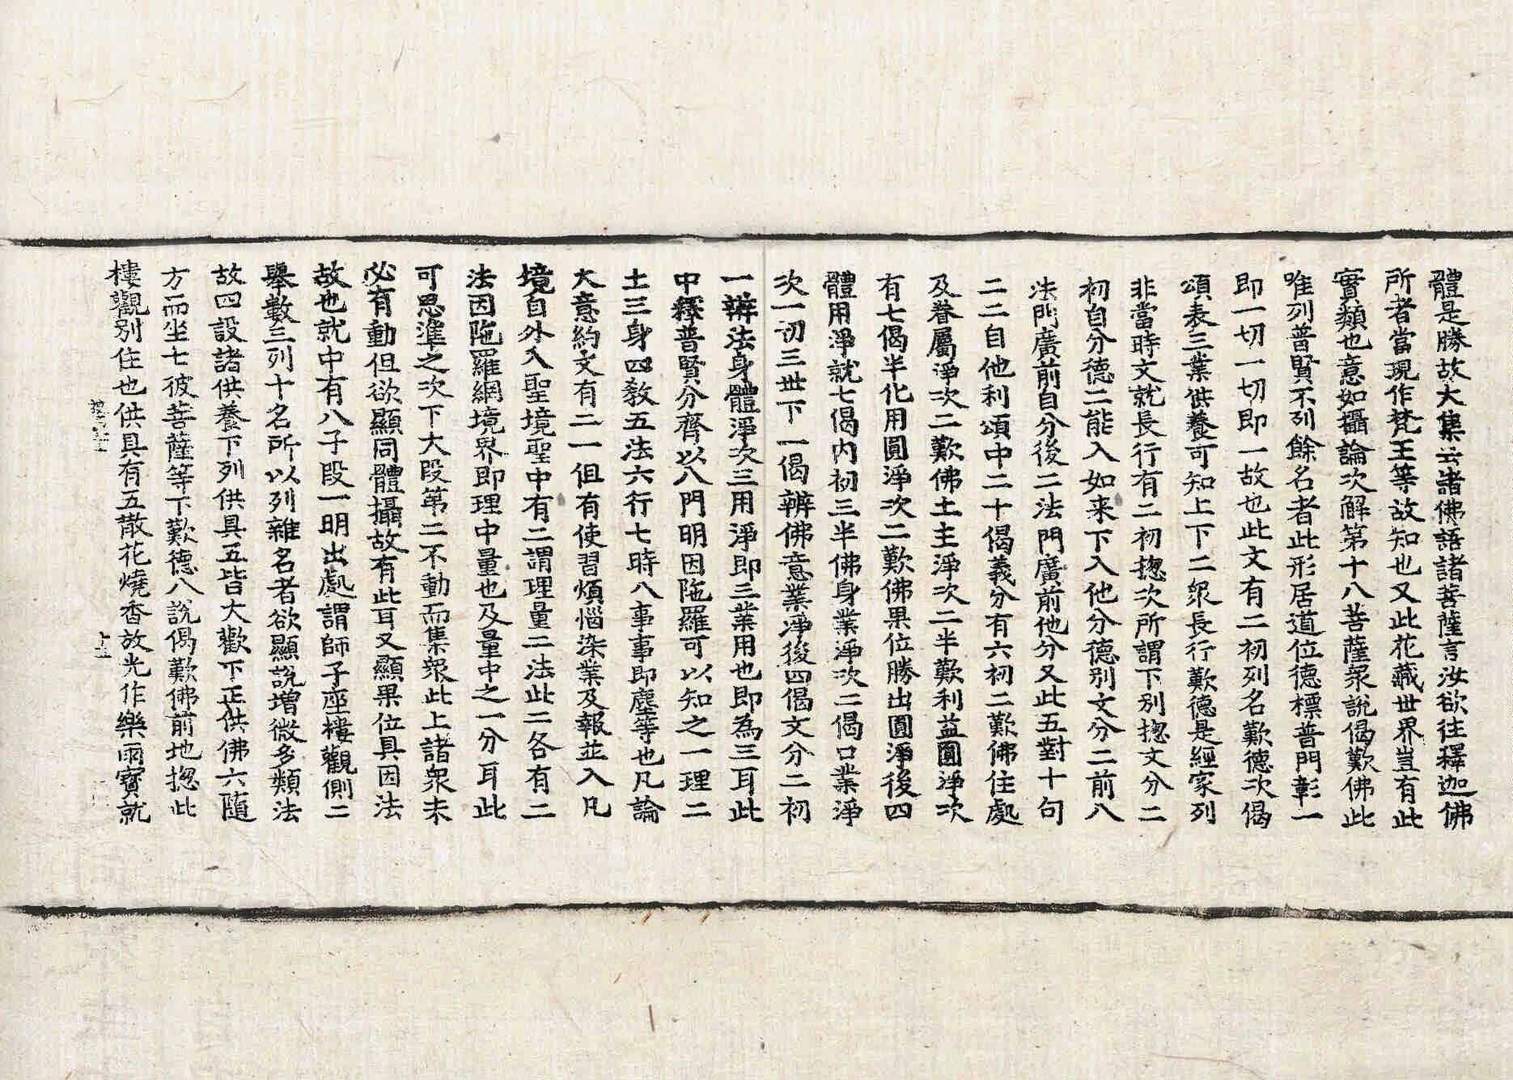 體是勝故大集云諸佛語諸菩薩言汝欲往釋迦佛
所者當現作梵王等故知也又此花藏世界豈有此
實類也意如攝論次解第十八菩薩衆說偈歎佛此
唯列普賢不列餘名者此形居道位德標普門彰一
即一切一切即一故也此文有二初列名歎德次偈
頌表三業供養可知上下二衆長行歎德是經家列
非當時文就長行有二初揔次所謂下別揔文分二
初自分德二能入如来下入他分德別文分二前八
法門廣前自分後二法門廣前他分又此五對十句
二二自他利頌中二十偈義分有六初二歎佛住處
及眷屬淨次二歎佛土主淨次二半歎利益圓淨次
有七偈半化用圓淨次二歎佛果位勝出圓淨後四
體用淨就七偈內初三半佛身業淨次二偈口業淨
次一切三世下一偈辨佛意業淨後四偈文分二初
一辨法身體淨次三用淨即三業用也即為三耳此
中釋普賢分齊以八門明因陁羅可以知之一理二
土三身四教五法六行七時八事事即塵等也凡論
大意約文有二一但有使習煩惱染業及報並入凡
境自外入聖境聖中有二謂理量二法此二各有二
法因陁羅網境界即理中量也及量中之一分耳此
可思準之次下大段第二不動而集衆此上諸衆未
必有動但欲顯同體攝故有此耳又顯果位具因法
故也就中有八子段一明出處謂師子座樓觀側二
舉數三列十名所以列雜名者欲顯說增微多類法
故四設諸供養下列供具五皆大歡下正供佛六隨
方而坐七彼菩薩等下歎德八說偈歎佛前地揔此
樓觀別住也供具有五散花燒香放光作樂雨寶就
十五